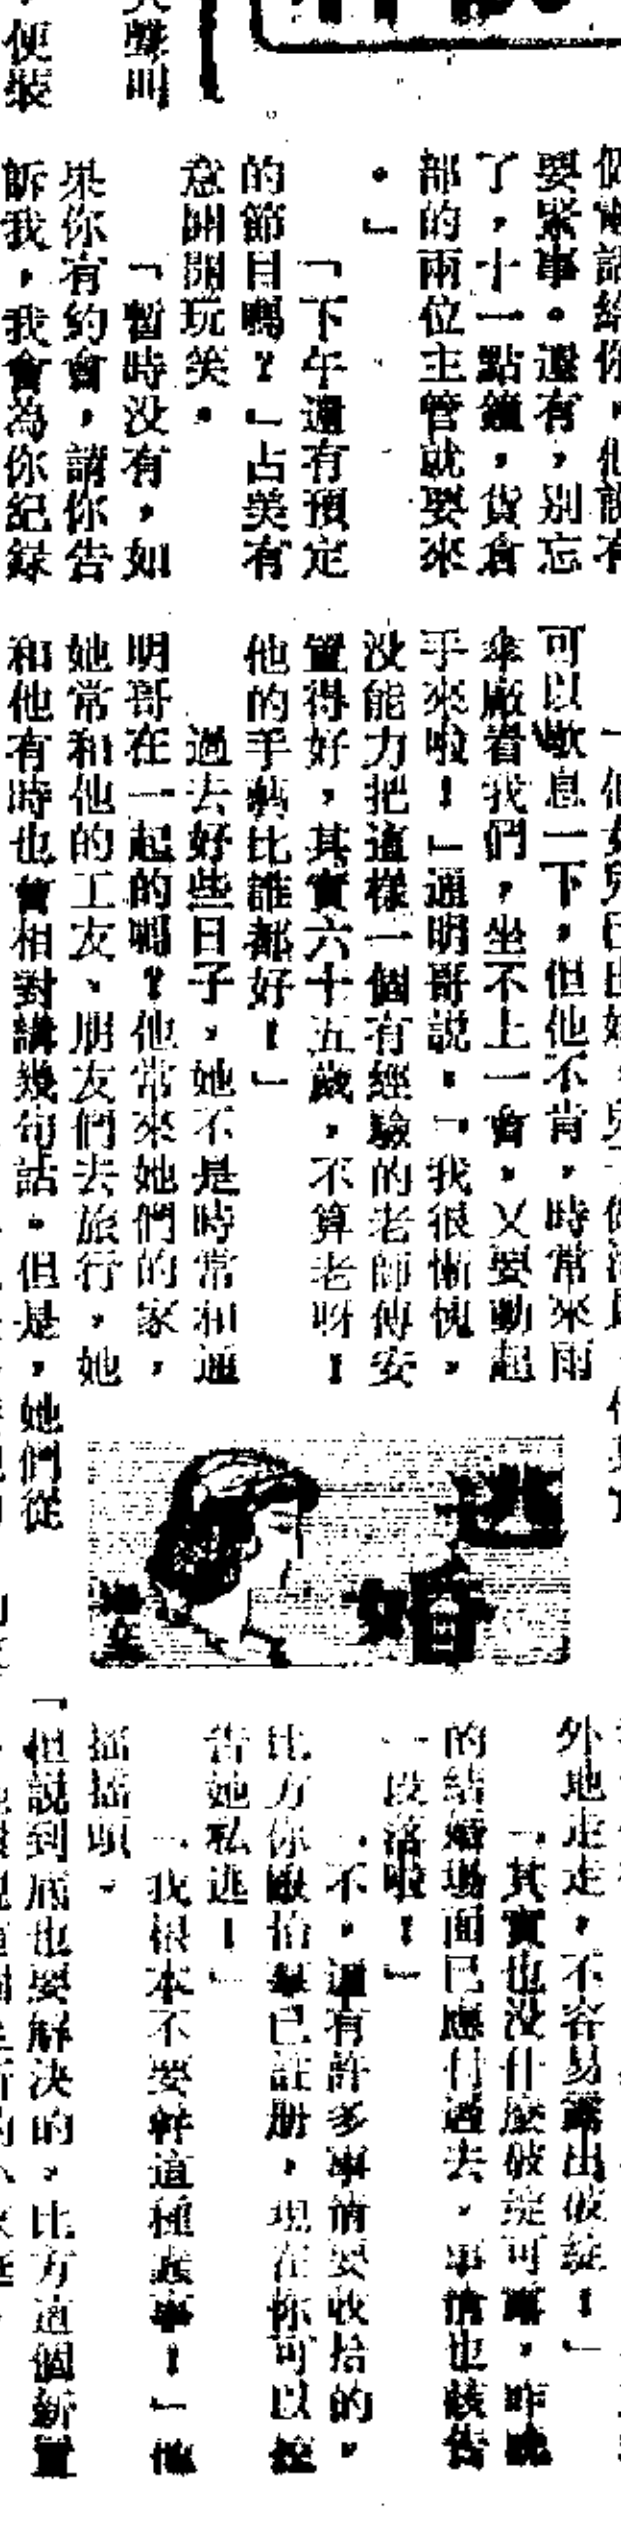 大聲叫
便裝
個電話給你，他說有
要緊事。還有，別忘
了，十一點鐘，貨倉
部的兩位主管就要來
。」
「下午還有預定
的節目嗎？」占美有
意開開玩笑。
「暫時没有，如
果你有約會，請你告
訴我，我會為你紀錄
可以歇息一下，但他不肯，時常來雨
傘廠看我們，坐不上一會，又要動起
手來啦！」通明哥説：「我很慚愧，
没能力把這樣一個有經驗的老師傅安
置得好，其實六十五歲，不算老呀！
他的手藝比誰都好！」
過去好些日子，她不是時常和通
明哥在一起的嗎？他常來她們的家，
她常和他的工友、朋友們去旅行，她
和他有時也會相對講幾句話。但是，她們從
逃婚
外地走走，不容易露出破綻！」
「其實也没什麼破綻可露，昨晚
的結婚場面已應付過去，事情也該告
一段落啦！」
「不，還有許多事情要收拾的，
比方你跟怡翠已註册，現在你可以控
告她私逃！」
「我根本不要幹這種蠢事！」他
搖搖頭。
「但説到底也要解決的，比方這個新置